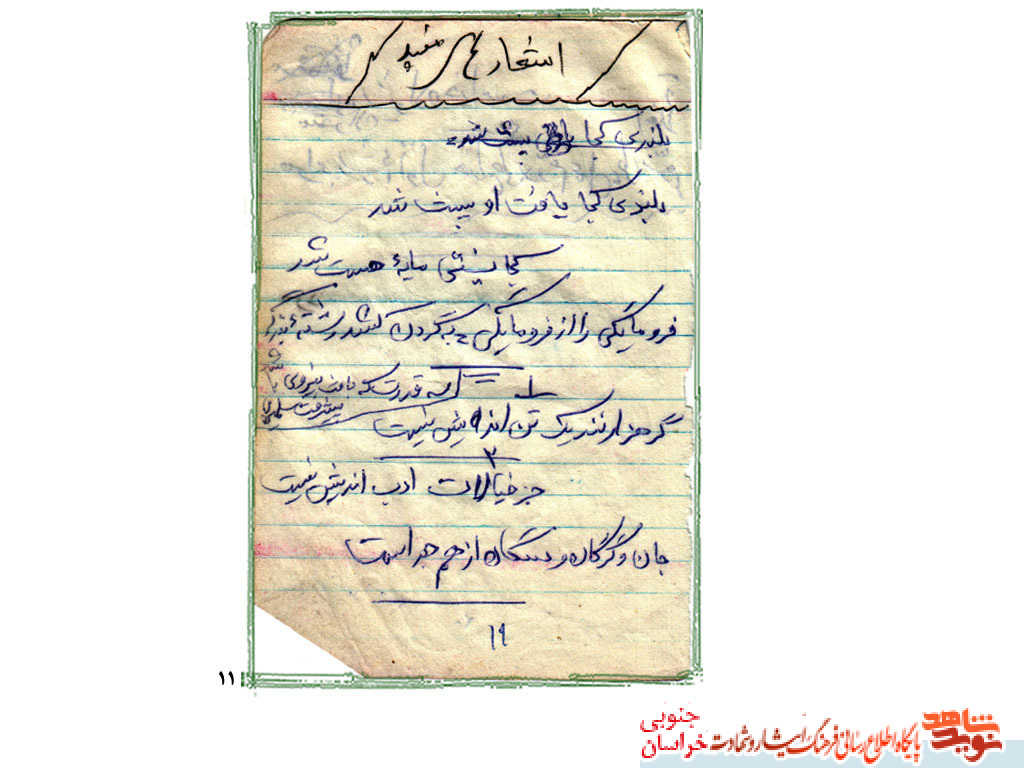 اشعارهای مفید
بلندی کجا
بلندی کجا یافت او پست شد
کجا نیستی مایهٔ هست شد
فرومایگی را از فرومایگی به گردن کشد رشتهٔ بندگی
۱
که قدرت که بافت نیروی
گر هزارانند یک تن اندیش نیست
۲
جز خیالات ادب اندیش نیست
جان و گرگان و سگان از هم جداست
۱۹
۱۱
نوید شاهد
پایگاه اطلاع رسانی فرهنگ ایثار و شهادت
خراسان جنوبی